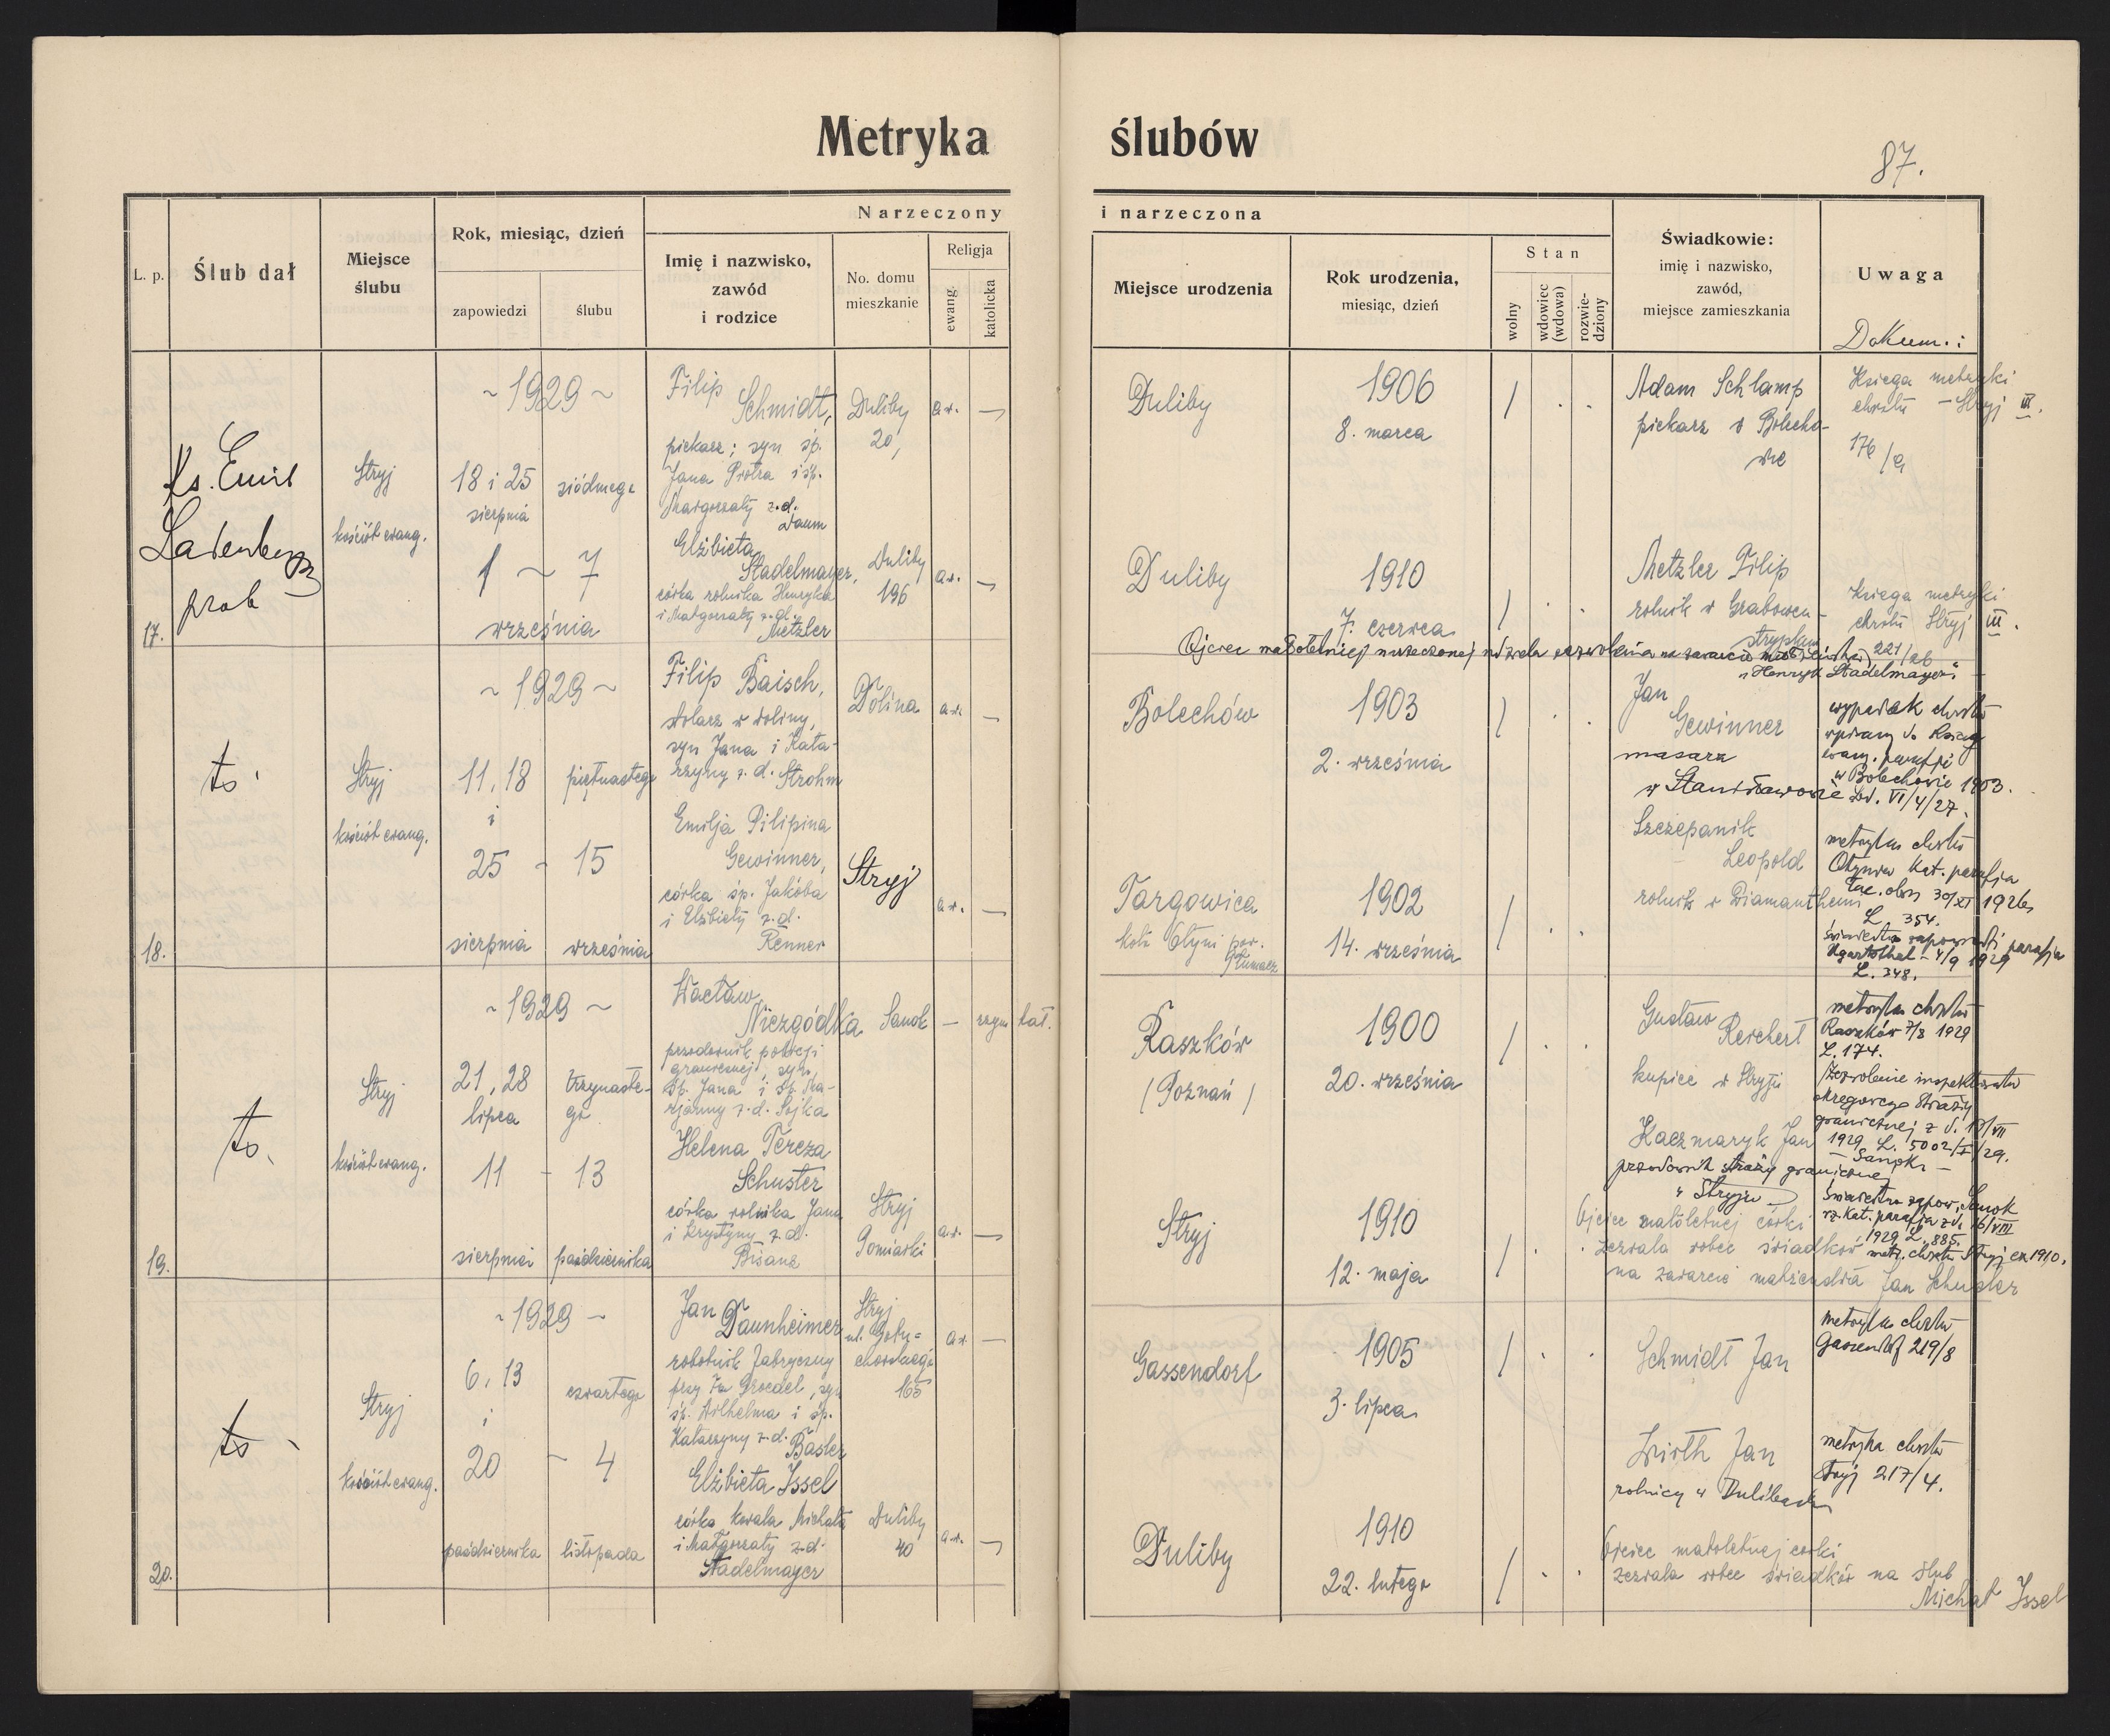 Metryka ślubów
87.
L. p.
Ślub dał
Miejsce
ślubu
Rok, miesiąc, dzień
zapowiedzi
ślubu
Narzeczony
Imię i nazwisko,
zawód
i rodzice
No. domu
mieszkanie
Religja
ewang.
katolicka
i narzeczona
Miejsce urodzenia
Rok urodzenia,
miesiąc, dzień
Stan
wolny
wdowiec
(wdowa)
rozwie-
dziony
Świadkowie:
imię i nazwisko,
zawód,
miejsce zamieszkania
Uwaga
Dokum.:
17.
Ks. Emil
Ladenberger
prob
Stryj
kościół ewang.
~ 1929 ~
18 i 25
sierpnia
siódmego
1 ~ 7
września
Filip
Schmidt,
piekarz; syn śp.
Jana Piotra i śp.
Małgorzaty z.d.
Daum
Duliby
20,
a.w.
—
Elżbieta
Stadelmayer,
córka rolnika Henryka
i Małgorzaty z.d.
Metzler
Duliby
196
a.w.
—
Duliby
1906
8. marca
/
Adam Schlamp
piekarz w Bolecho-
wie
Księga metryki
chrztu — Stryj III.
176/9
Duliby
1910
7. czerwca
/
Metzler Filip
rolnik w Grabowcu-
stryjskim
Księga metryki
chrztu Stryj III.
221/26
Ojciec małoletniej narzeczonej udziela zezwolenia na zawarcie małżeństwa
"Henryk Stadelmayer"
18.
to.
Stryj
kościół ewang.
~ 1929 ~
11, 18
i
25 - 15
piętnastego
sierpnia
września
Filip Baisch,
stolarz w Doliny,
syn Jana i Kata-
rzyny z.d. Strohm
Dolina
a.w.
—
Emilja Pilipina
Gewinner,
córka śp. Jakóba
i Elżbiety z.d.
Renner
Stryj
a.w.
—
Bolechów
1903
2. września
/
Jan
Gewinner
masarz
w Stanisławowie
wypadek chrztu
wpisany do Księgi
ewang. parafji
w Bolechowie 1903.
VI/4/27.
Targowica
koło Otyni pow.
Tłumacz
1902
14. września
/
Szczepanik
Leopold
rolnik w Diamantheim
metryka chrztu
Otynia Kat. parafja
30/XI 1926
L. 354.
świadectwo zapowiedzi parafja
Ugartsthal - 4/9 1929
L. 348.
19.
to.
Stryj
kościół ewang.
~ 1929 ~
21, 28
lipca
trzynaste-
go
11 - 13
sierpnia
października
Wacław
Niezgódka
przodownik policji
granicznej, syn
śp. Jana i śp. Ma-
rjanny z.d. Sojka
Sanok
—
rzym kat.
Helena Tereza
Schuster
córka rolnika Jana
i Krystyny z.d.
Bisanz
Stryj
Pomiarki
a.w.
—
Raszków
(Poznań)
1900
20. września
/
Gustaw
Reichert
kupiec w Stryju
metryka chrztu
Raszków 7/8 1929
L. 174.
Zezwolenie inspektoratu
okręgowego Straży
granicznej z d. 13/VII
1929 L. 5002/I/29.
— Sanok —
Stryj
1910
12. maja
/
Kaczmaryk Jan
przodownik straży granicznej
w Stryju
świadectwo zapow. Sanok
rz. Kat. parafja z d. 16/VIII
1929 L. 885.
metr. chrztu Stryj ex 1910.
Ojciec małoletniej córki
zezwala wobec świadków
na zawarcie małżeństwa Jan Schuster
20.
to
Stryj
kościół ewang.
~ 1929 ~
6, 13
i
czwartego
20 - 4
października
listopada
Jan Daunheimer
robotnik fabryczny
przy fa Groedel, syn
śp. Wilhelma i śp.
Katarzyny z.d. Basler
Stryj
165
a.w.
—
Elżbieta Issel
córka kowala Michała
i Małgorzaty z.d.
Stadelmayer
Duliby
40
a.w.
—
Gassendorf
1905
3. lipca
/
Schmidt Jan
metryka chrztu
Gassendorf 219/8
Duliby
1910
22. lutego
/
Wirth Jan
rolnicy w Dulibach
metryka chrztu
Stryj 217/4.
Ojciec małoletniej córki
zezwala wobec świadków na ślub
Michał Issel